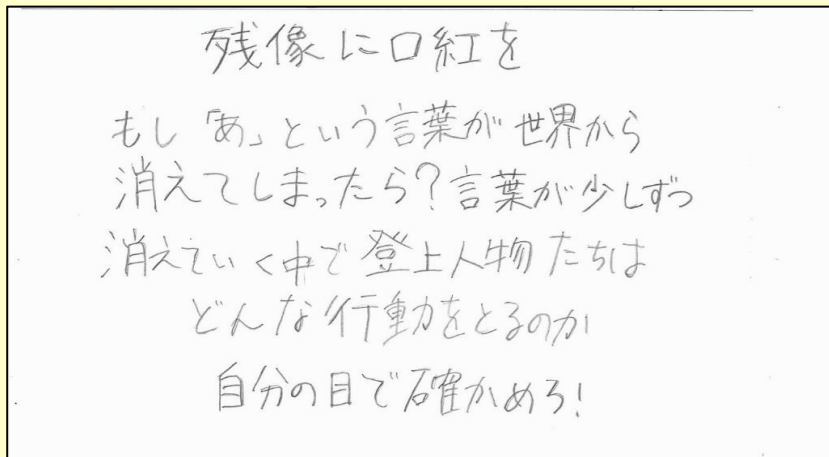 残像に口紅を
もし「あ」という言葉が世界から
消えてしまったら?言葉が少しずつ
消えていく中で登上人物たちは
どんな行動をとるのか
自分の目で確かめろ!